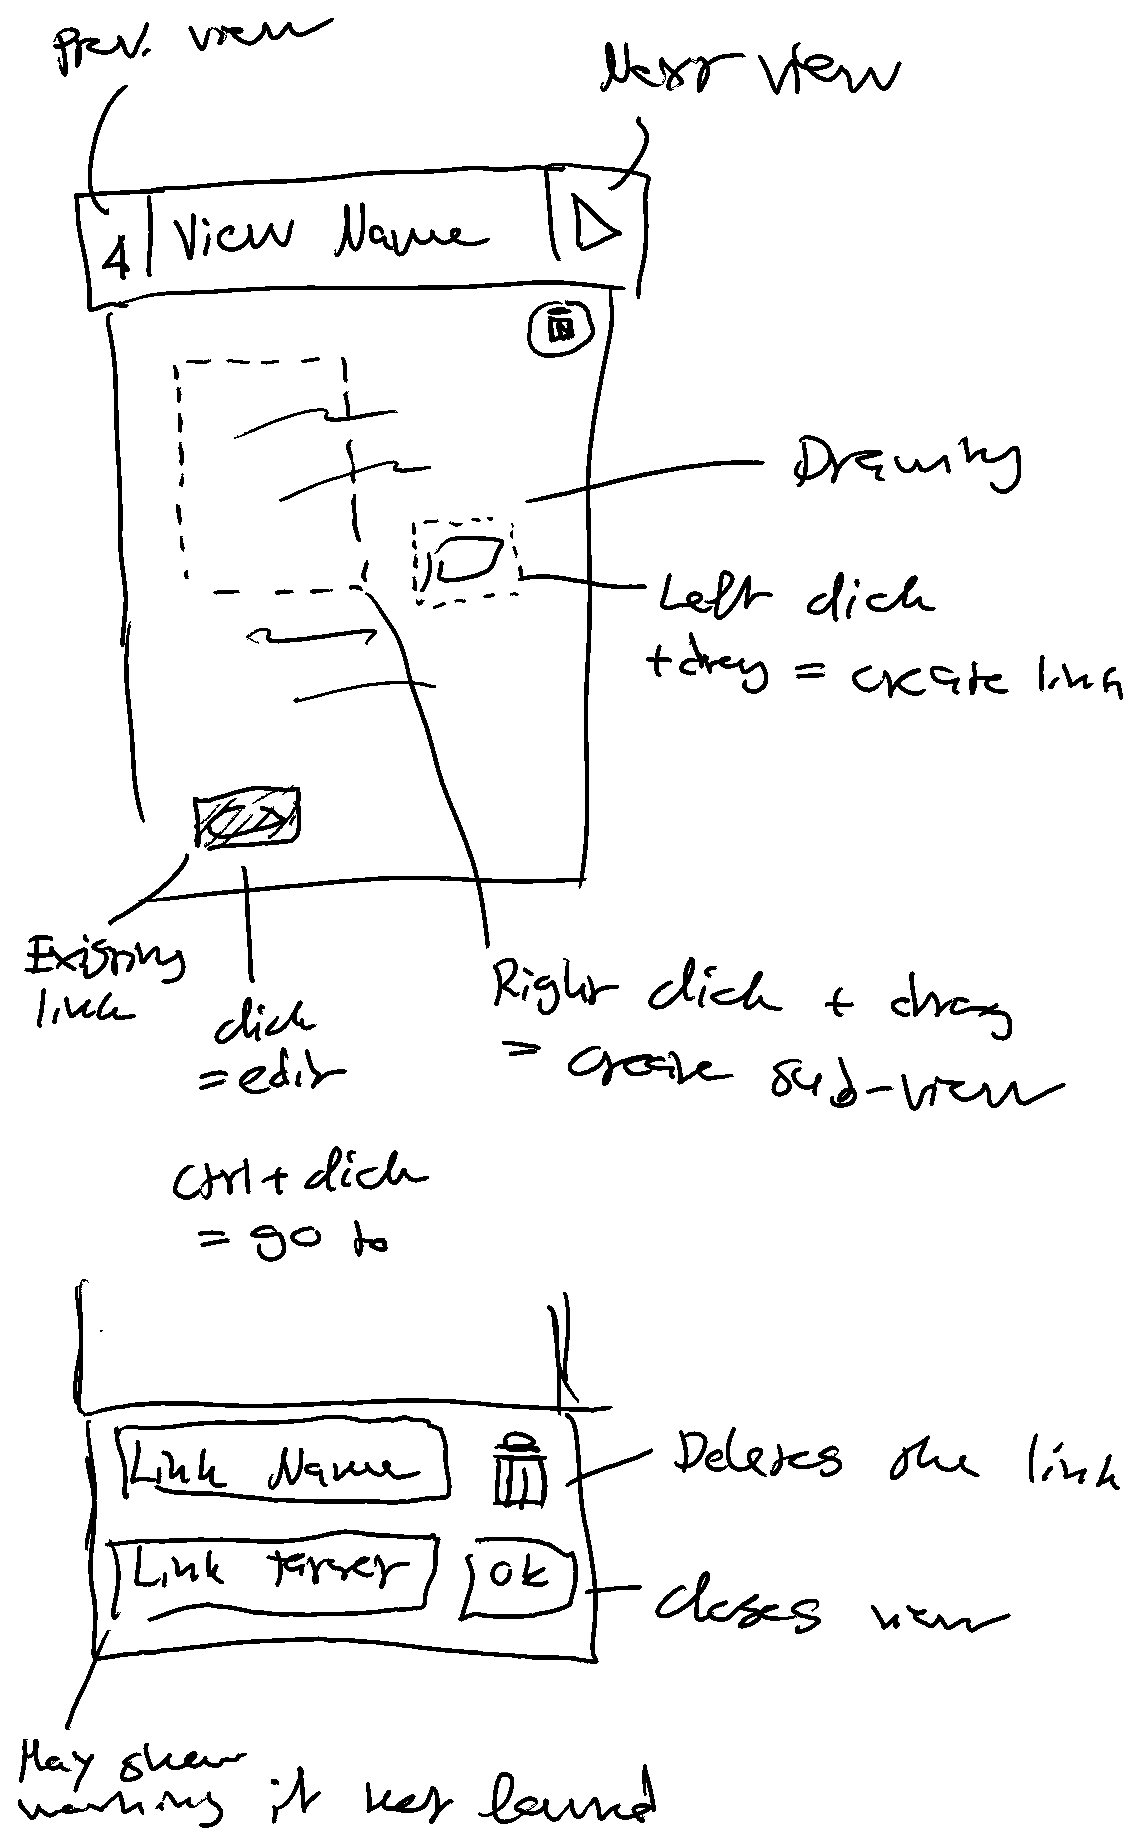 Prev. view
Next view
View Name
Drawing
Left click
+ drag = create link
Existing
link
click
= edit
Right click + drag
= create sub-view
Ctrl + click
= go to
Link Name
Deletes the link
Link target
OK
Closes view
May show
warning if not found